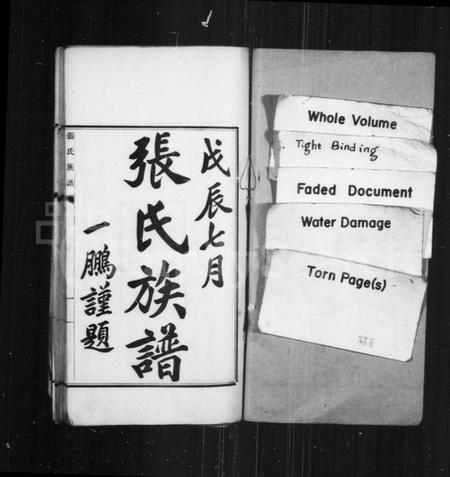 戊辰七月
張氏族譜
一鵬謹題
張氏族譜
Whole Volume
Tight Binding
Faded Document
Water Damage
Torn Page(s)